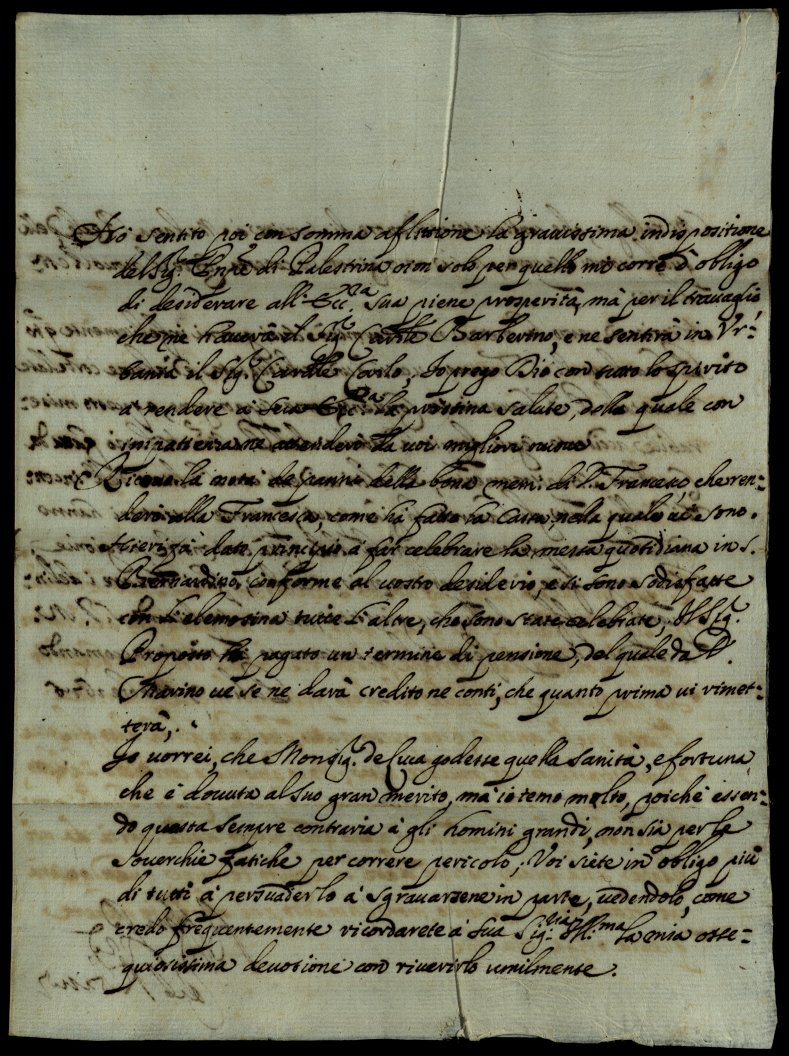 Hò sentito poi con somma aflitione la gravissima indispositione
del Sig.r Enpe di Palestrina non solo per quello mi corre d'obligo
di desiderare all'Ecc.za Sua piene prosperità, mà per il travaglio
che ne haverà il Sig.r Cardle Barberino, e ne sentirà in Vr-
bania il Sig.r Cardle Carlo, Io prego Dio con tutto lo spirito
a rendere a Sua Ecc.za la pristina salute, della quale con
impatienza ne attenderò da voi migliori nuove
la metà de panni della bona mem. di P. Francesco, che ren-
derò alla Francesca, come hà fatto la Casta nela quale ui sono.
date principio à far celebrare la messa quotidiana in S.
Bernardino, conforme al vostro desiderio, e si sono sodisfatte
con l'elemosina tutte l'altre, che sono state celebrate, Il Sig.r
Proposto hà pagato un termine di pensione, del quale da P.
Marino ue se ne darà credito ne conti, che quanto prima ui rimet-
terà,.
Io uorrei, che Monsig.r de Luca godesse quella sanità, e fortuna
che è douuta al suo gran merito, mà io temo molto, poiche essen-
do questa sempre contraria à gli homini grandi, non sia per le
souerchie fatiche per correre pericolo; Voi siete in obligo più
di tutti à persuaderlo à sgravarsene in parte, uedendolo, come
credo frequentemente ricordarete à Sua Sig.ria Ill.ma la mia osse-
quiosissima deuotione con riuerirlo umilmente.